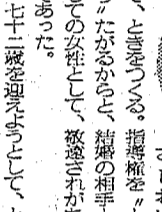 、ときをつくる。指導権を〃
〃たがるからと、結婚の相手
ての女性として、敬遠されが
あった。
七十二歳を迎えようとして、